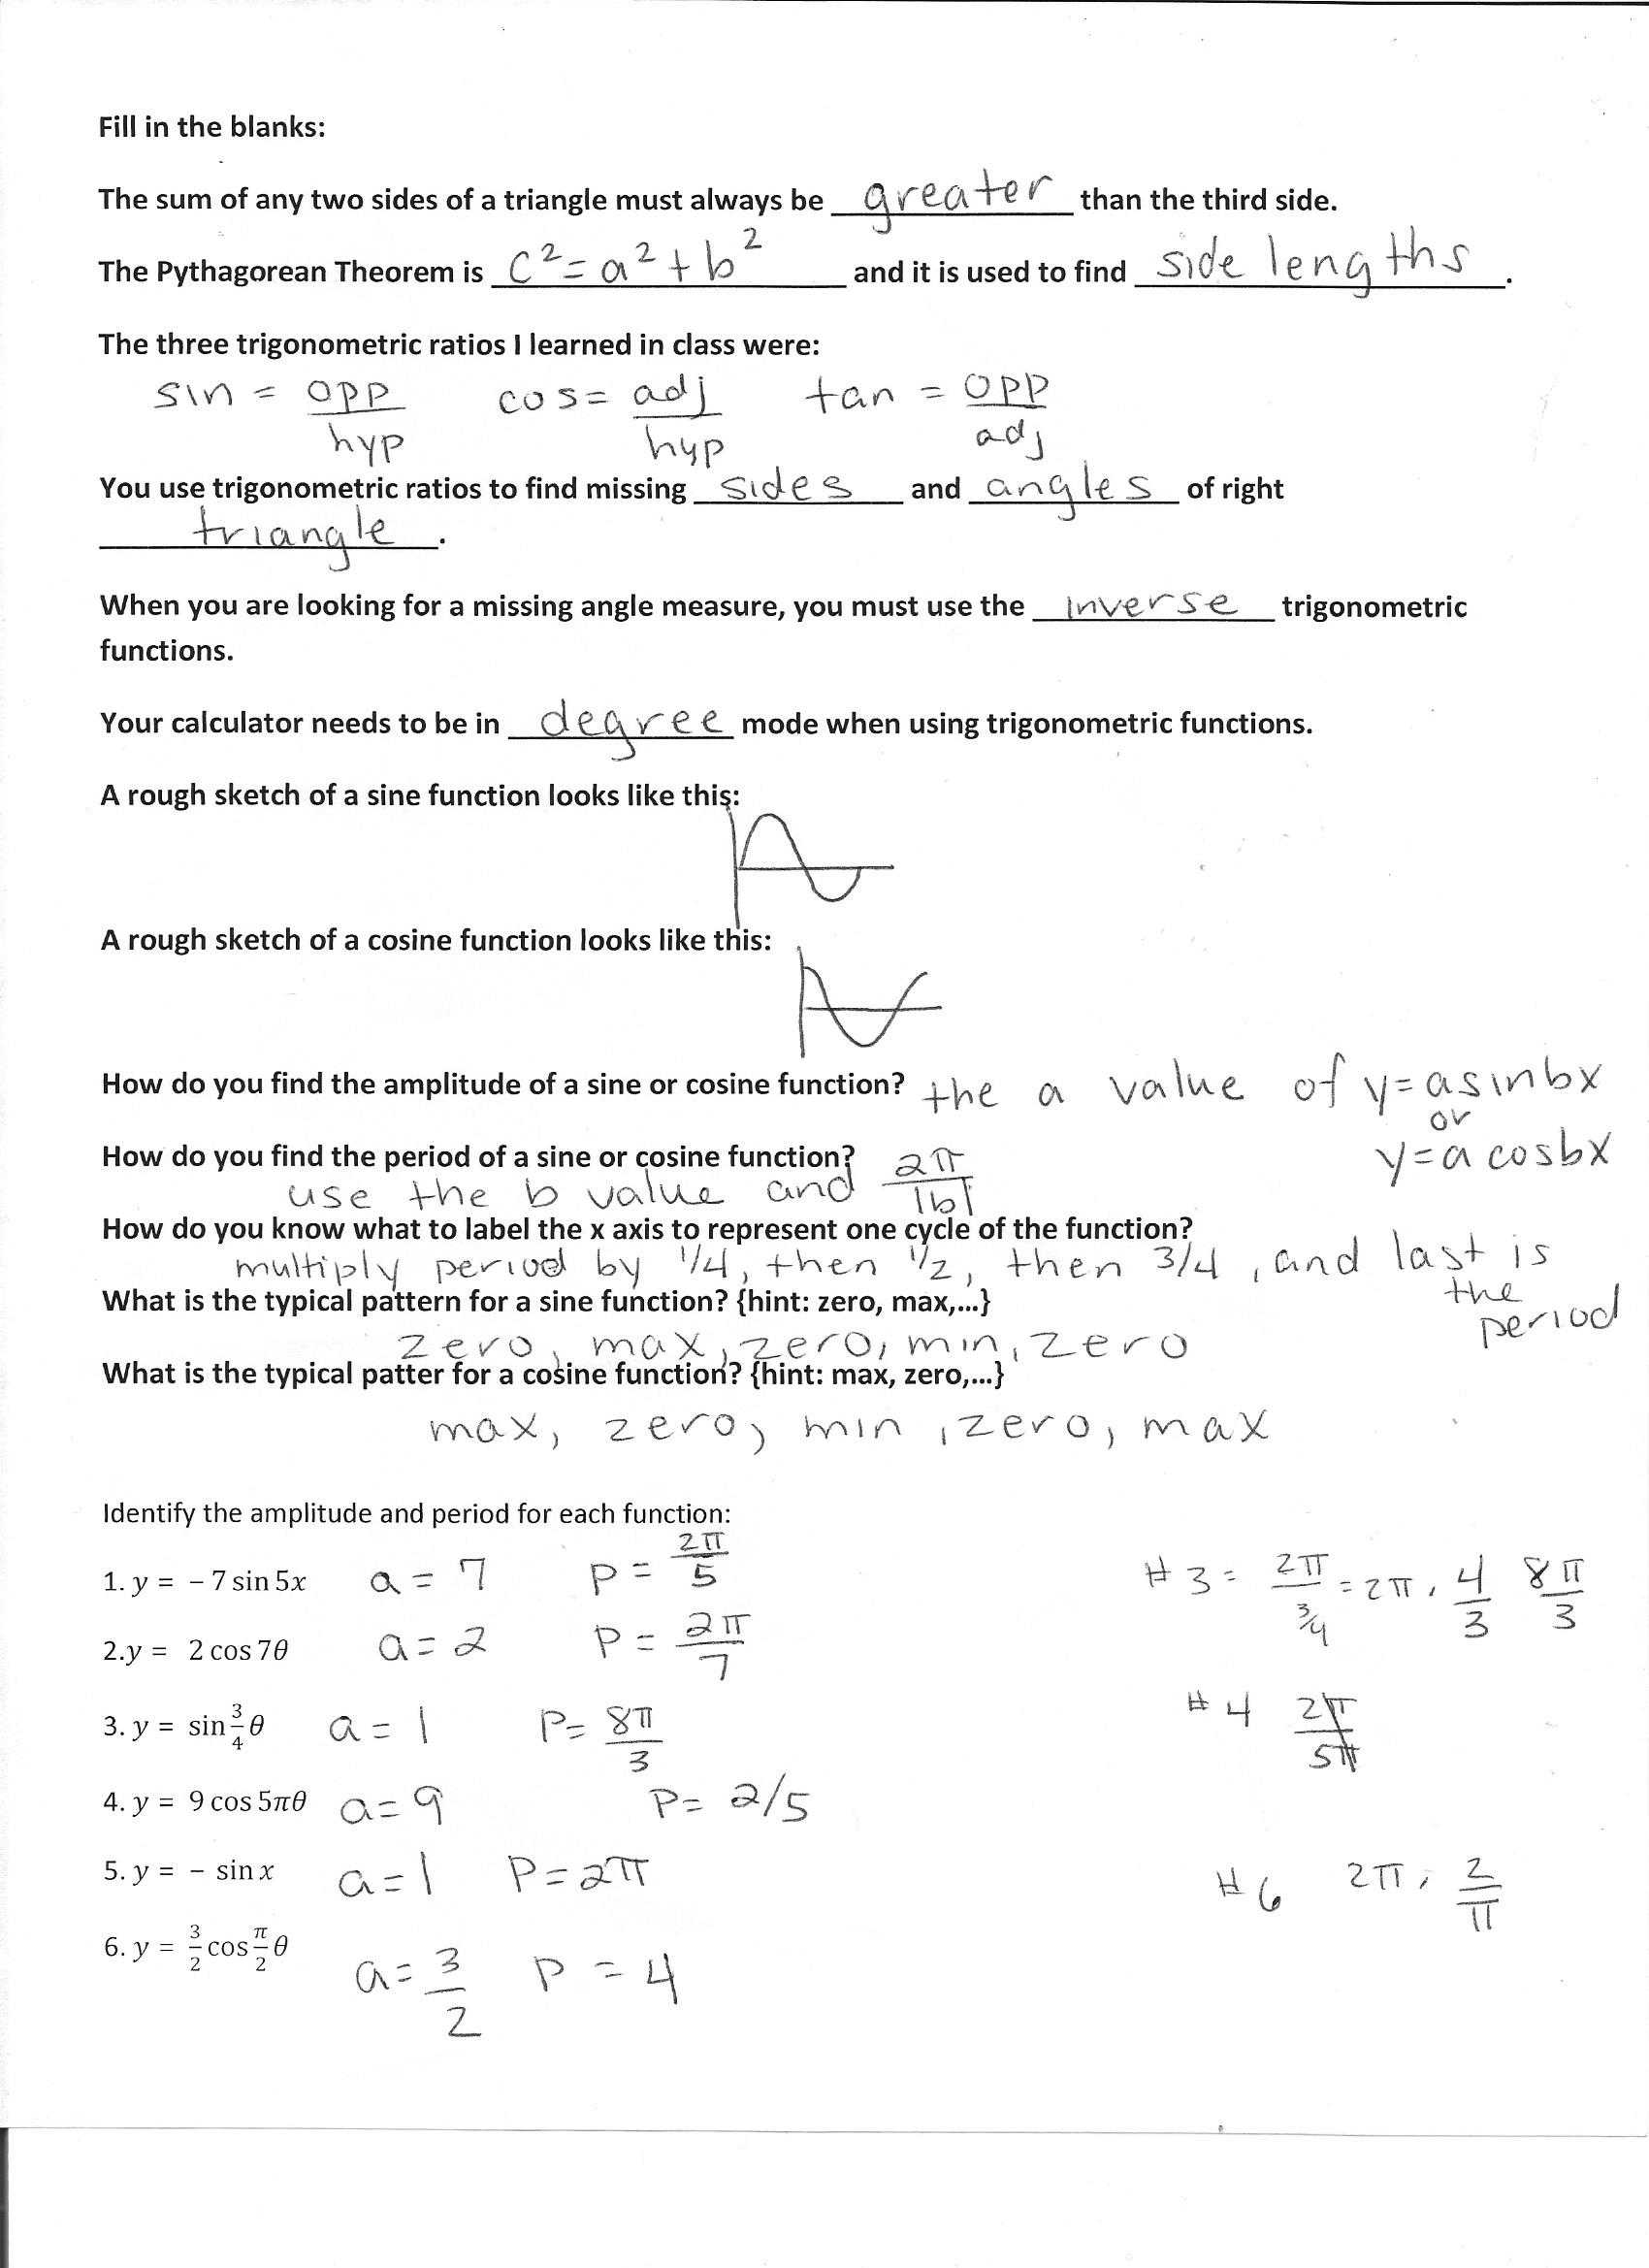 Fill in the blanks:
The sum of any two sides of a triangle must always be greater than the third side.
The Pythagorean Theorem is c²=a²+b² and it is used to find side lengths.
The three trigonometric ratios I learned in class were:
sin = opp/hyp cos= adj/hyp tan = opp/adj
You use trigonometric ratios to find missing sides and angles of right
triangle.
When you are looking for a missing angle measure, you must use the inverse trigonometric
functions.
Your calculator needs to be in degree mode when using trigonometric functions.
A rough sketch of a sine function looks like this:
A rough sketch of a cosine function looks like this:
How do you find the amplitude of a sine or cosine function? the a value of y=asinbx
or
y=a cosbx
How do you find the period of a sine or cosine function?
use the b value and 2π/|b|
How do you know what to label the x axis to represent one cycle of the function?
multiply period by 1/4, then 1/2, then 3/4, and last is
the
period
What is the typical pattern for a sine function? {hint: zero, max,...}
zero, max, zero, min, zero
What is the typical patter for a cosine function? {hint: max, zero,...}
max, zero, min, zero, max
Identify the amplitude and period for each function:
1. y = − 7 sin 5x a = 7 p = 2π/5
#3 = 2π/¾ = 2π · 4/3 8π/3
2.y = 2 cos 7θ a = 2 p = 2π/7
3. y = sin 3/4 θ a = 1 p= 8π/3
#4 2π/5π
4. y = 9 cos 5πθ a=9 p= 2/5
5. y = − sin x a=1 p=2π
#6 2π · 2/π
6. y = 3/2 cos π/2 θ a= 3/2 p = 4